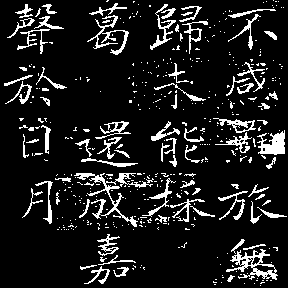 不感羈旅無
歸未能採
葛還成嘉
聲於日月